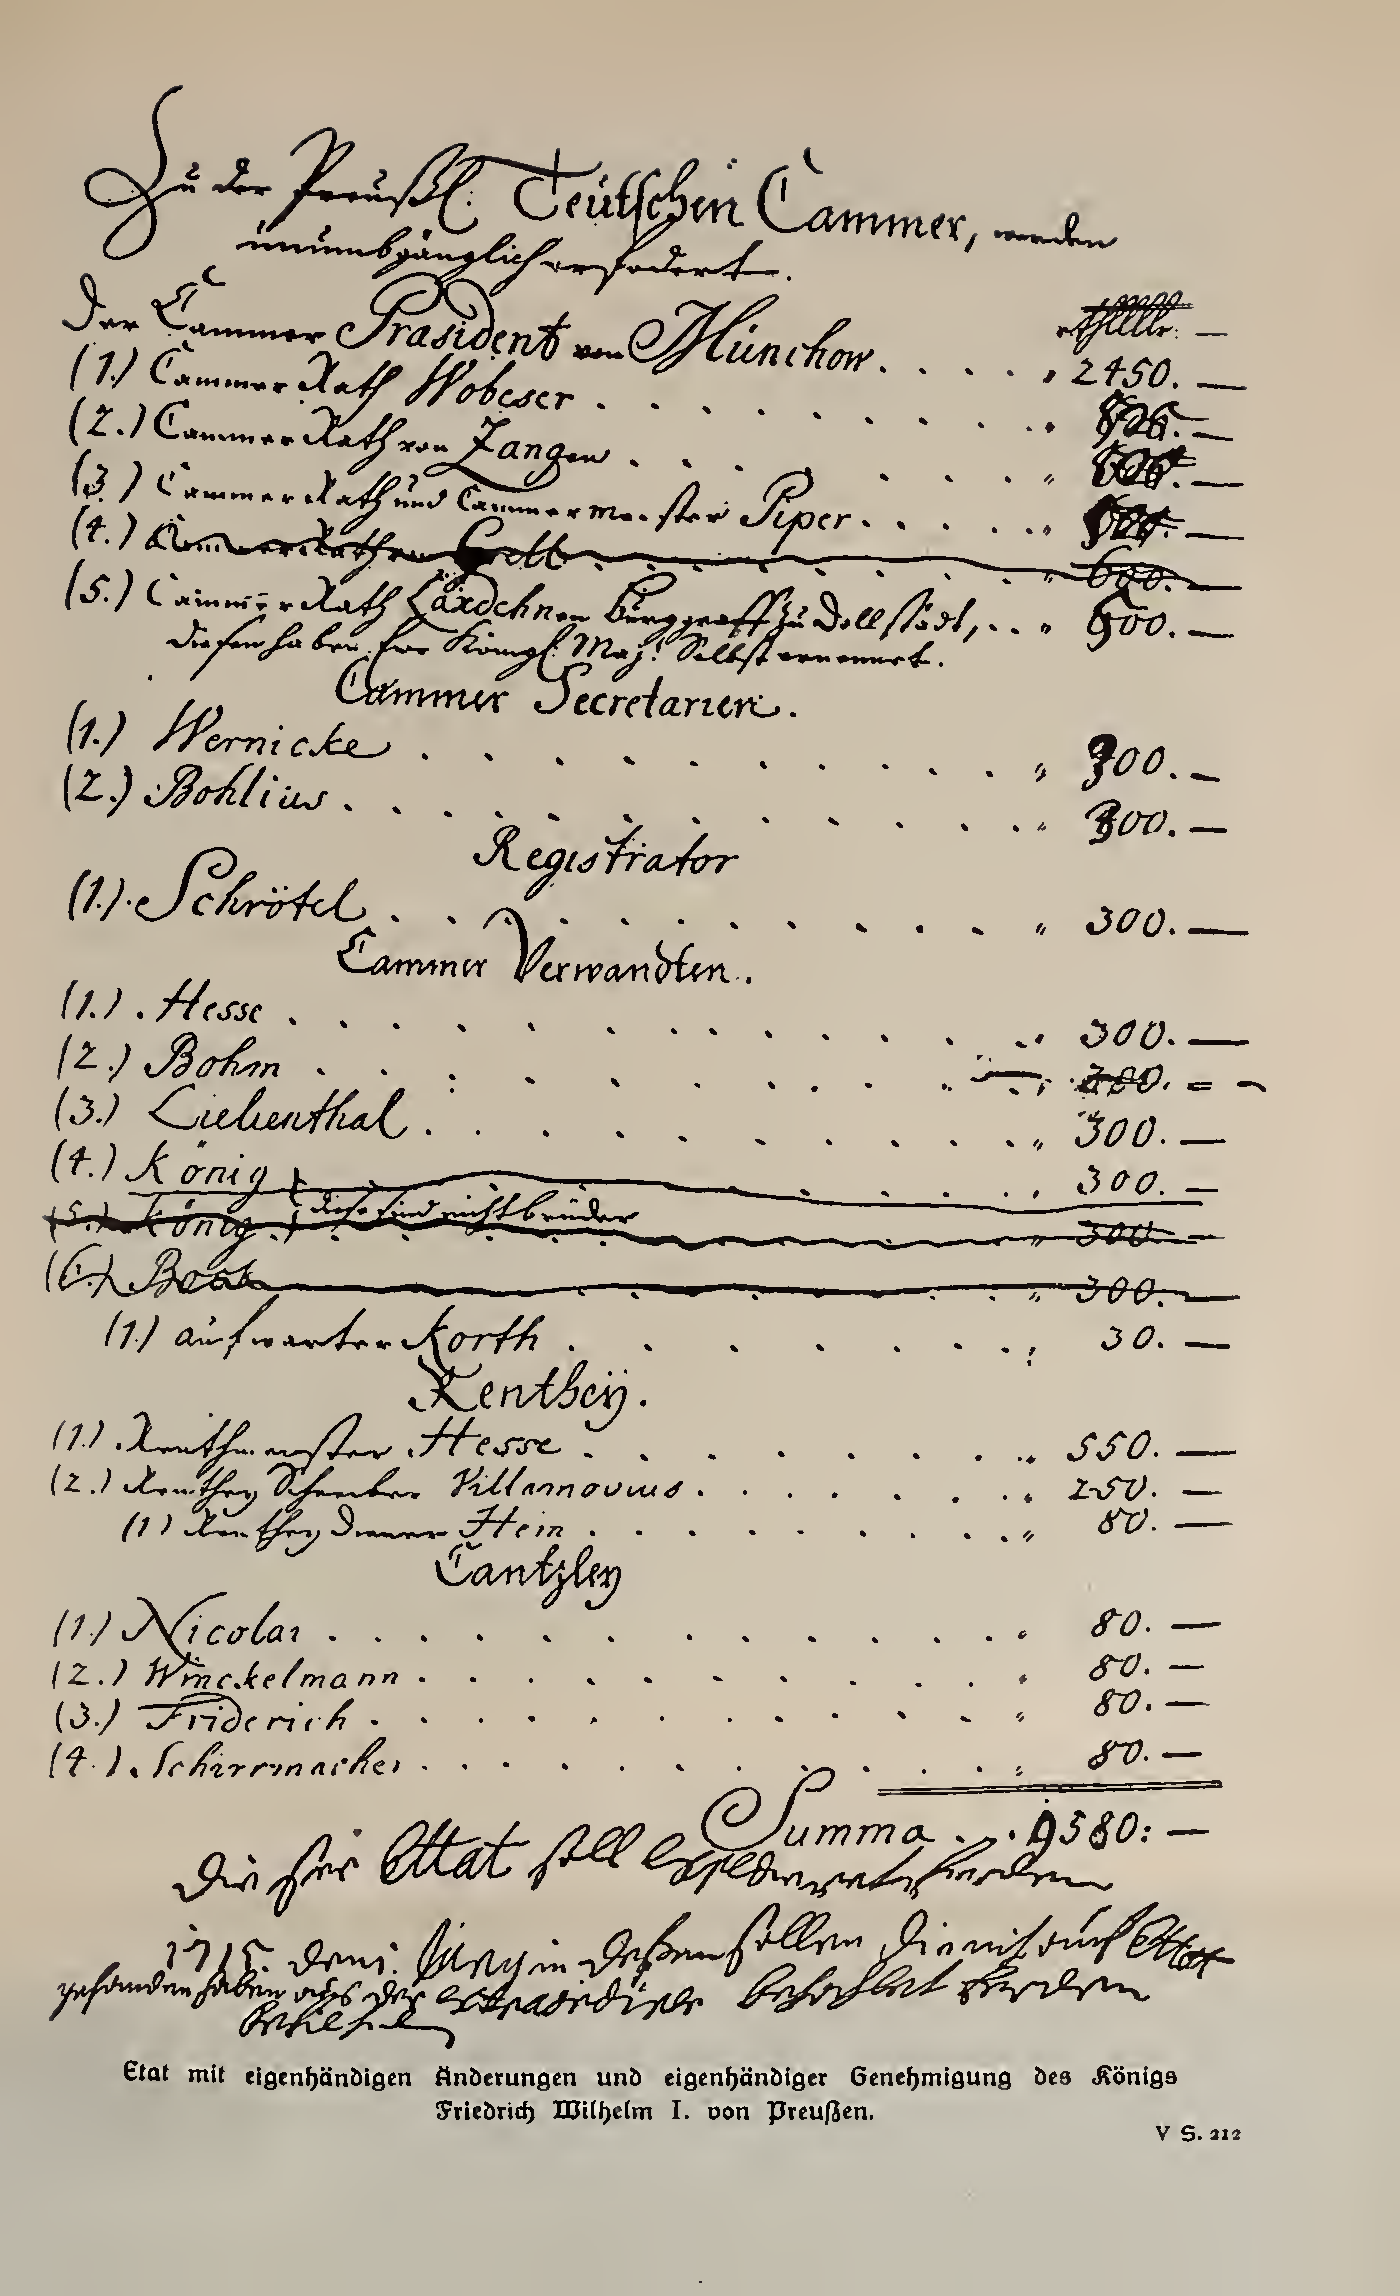 Zu der Preußl. Teütschen Cammer, werden
unumbgänglich erfodert.
Der Cammer Præsident von Münchow. . . . . " 2450. —
(1.) Cammer Rath Wobeser . . . . . . . . "
(2.) Cammer Rath von Zangen . . . . . . "
(3.) Cammer Rath und Cammermeister Piper. . . . . "
(4.) Cammer Rath von . . . . . . " 600. —
(5.) Cammer Rath Lärdehnen Burggraff zu Dollstädt, . . " 600. —
diesen haben Ew. Königl. Maj. Selbst ernennet.
Cammer Secretarien.
(1.) Wernicke . . . . . . . . . " 300. —
(2.) Bohlius . . . . . . . . . . " 300. —
Registrator
(1.) Schrötel . . . . . . . . . " 300. —
Cammer Verwandten.
(1.) Hesse . . . . . . . . . . " 300. —
(2.) Bohm . . . . . . . . . .
(3.) Lielienthal . . . . . . . . " 300. —
(4.) König . . . . 300. —
(5.) König diese sind nicht brüder " 300. —
(6.) . . . . . " 300. —
(1.) aufwarter Korth . . . . . . . 30. —
Renthey.
(1.) Renthmeister Hesse . . . . . . . " 550. —
(2.) Renthey Schreiber Villamovius . . . . . . " 250. —
(1) Renthey Diener Hein . . . . . . . . " 80. —
Cantzley
(1.) Nicolai . . . . . . . . . . " 80. —
(2.) Winckelmann . . . . . . . . " 80. —
(3.) Friderich . . . . . . . . . " 80. —
(4.) Schirrmacher . . . . . . . . " 80. —
Summa . . . 9580: —
Dieser Ettat soll werden
1715 den 1. in deßen sollen die nit auf Ettat
gestanden haben aus der bezahlet werden
Etat mit eigenhändigen Änderungen und eigenhändiger Genehmigung des Königs
Friedrich Wilhelm I. von Preußen.
V S. 212